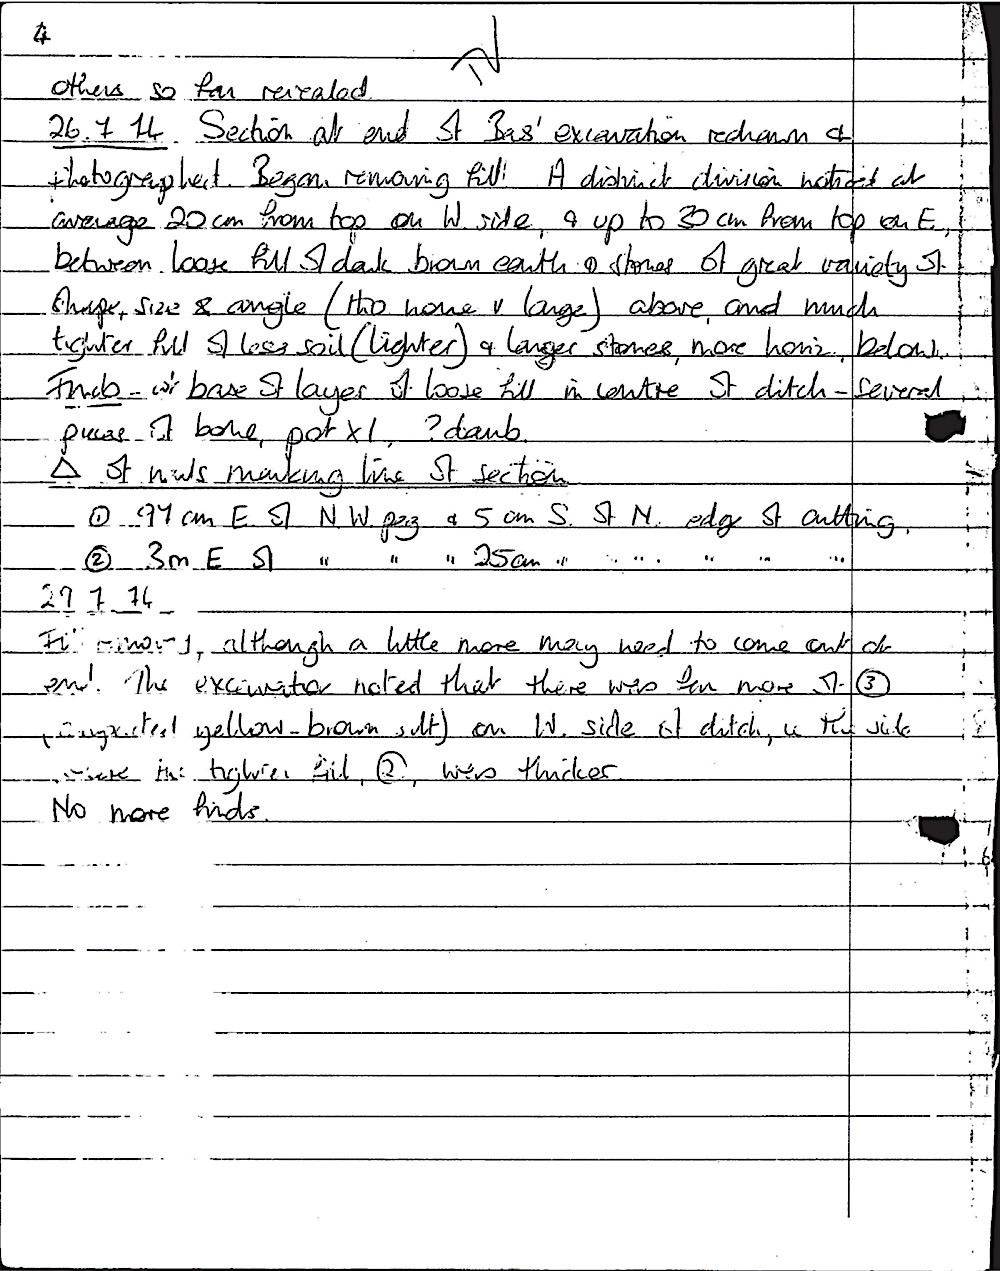 4
IV
others so far revealed.
26.7.74. Section at end of Bas' excavation redrawn &
photographed. Began removing fill. A distinct division noticed at
average 20 cm from top on W. side, & up to 30 cm from top on E,
between loose fill of dark brown earth & stones of great variety of
shape, size & angle (tho none v large) above, and much
tighter fill of less soil (lighter) & larger stones, more horiz, below.
Finds - at base of layer of loose fill in centre of ditch - several
pieces of bone, pot x1, ?daub.
△ of nails marking line of section
① 97 cm E. of N.W. peg & 5 cm S. of N. edge of cutting.
② 3m E of " " " 25cm " " " " " "
29 7 74
Fill removed, although a little more may need to come out at
end. The excavator noted that there was far more of ③
yellow-brown silt) on W. side of ditch, ie the side
where the tighter fill, ②, was thicker.
No more finds.